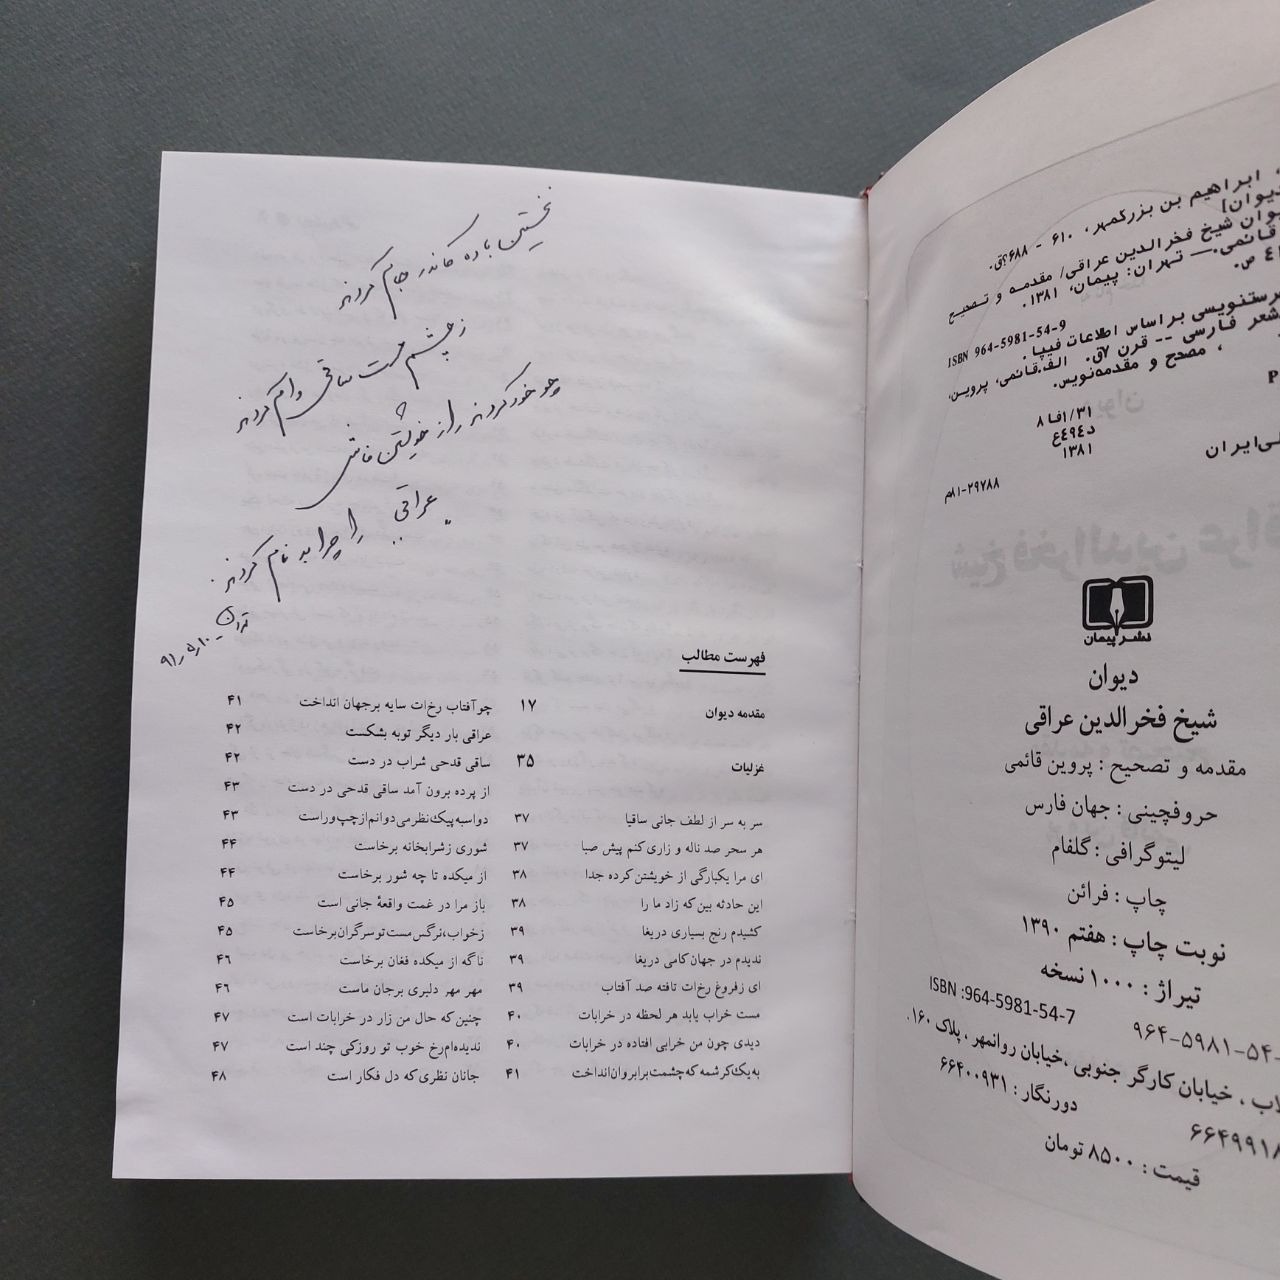 ابراهیم بن بزرگمهر، ۶۱۰ - ۶۸۸؟ق.
دیوان]
دیوان شیخ فخرالدین عراقی/ مقدمه و تصحیح
قائمی.— تهران: پیمان، ۱۳۸۱.
ص.
ISBN 964-5981-54-9
فهرستنویسی براساس اطلاعات فیپا.
شعر فارسی -- قرن ۷ق. الف.قائمی، پروین،
، مصحح و مقدمه‌نویس.
P
۸فا۱/۳۱
د۴۹۴ع
۱۳۸۱
۸۱-۲۹۷۸۸م
نشر پیمان
دیوان
شیخ فخرالدین عراقی
مقدمه و تصحیح : پروین قائمی
حروفچینی : جهان فارس
لیتوگرافی : گلفام
چاپ : فرائن
نوبت چاپ : هفتم ۱۳۹۰
تیراژ : ۱۰۰۰ نسخه
ISBN :964-5981-54-7
۹۶۴-۵۹۸۱-۵۴-
، خیابان کارگر جنوبی ،خیابان روانمهر ، پلاک ۱۶۰.
دورنگار : ۶۶۴۰۰۹۳۱
۶۶۴۹۹۱۸
قیمت : ۸۵۰۰ تومان
نخستین باده کاندر جام کردند
ز چشم مست ساقی وام کردند
چو خود کردند راز خویشتن فاش
عراقی را چرا بدنام کردند
تهران ـ ۱۰ر۵ر۹۱
فهرست مطالب
مقدمه دیوان ۱۷
غزلیات ۳۵
سر به سر از لطف جانی ساقیا ۳۷
هر سحر صد ناله و زاری کنم پیش صبا ۳۷
ای مرا یکبارگی از خویشتن کرده جدا ۳۸
این حادثه بین که زاد ما را ۳۸
کشیدم رنج بسیاری دریغا ۳۹
ندیدم در جهان کامی دریغا ۳۹
ای زفروغ رخ‌ات تافته صد آفتاب ۳۹
مست خراب یابد هر لحظه در خرابات ۴۰
دیدی چون من خرابی افتاده در خرابات ۴۰
به یک کرشمه که چشمت بر ابروان انداخت ۴۱
چو آفتاب رخ‌ات سایه برجهان انداخت ۴۱
عراقی بار دیگر توبه بشکست ۴۲
ساقی قدحی شراب در دست ۴۲
از پرده برون آمد ساقی قدحی در دست ۴۳
دو اسبه پیک نظر می‌دوانم از چپ و راست ۴۳
شوری زشرابخانه برخاست ۴۴
از میکده تا چه شور برخاست ۴۴
باز مرا در غمت واقعهٔ جانی است ۴۵
زخواب، نرگس مست تو سرگران برخاست ۴۵
ناگه از میکده فغان برخاست ۴۶
مهر مهر دلبری برجان ماست ۴۶
چنین که حال من زار در خرابات است ۴۷
ندیده‌ام رخ خوب تو روزکی چند است ۴۷
جانان نظری که دل فکار است ۴۸